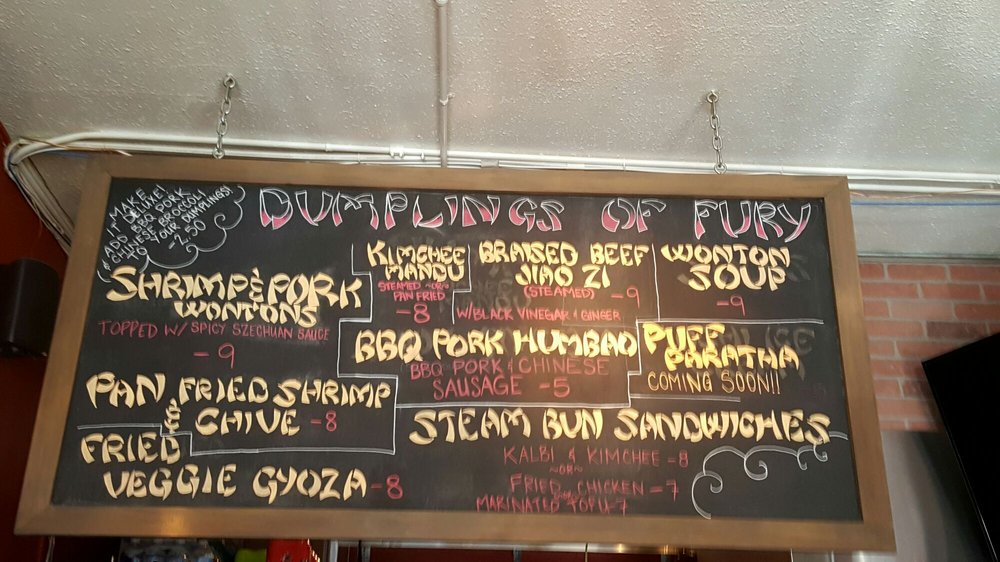 MAKE
IT DELUXE!
ADD BBQ PORK
& CHINESE BROCCOLI
TO YOUR DUMPLINGS!
-2.50
DUMPLINGS OF FURY
SHRIMP & PORK
WONTONS
TOPPED W/ SPICY SZECHUAN SAUCE
-9
KIMCHEE
MANDU
STEAMED ~OR~
PAN FRIED
-8
BRAISED BEEF
JIAO ZI
(STEAMED) -9
W/BLACK VINEGAR & GINGER
WONTON
SOUP
-9
BBQ PORK HUMBAO
BBQ PORK & CHINESE
SAUSAGE -5
PUFF
PARATHA
COMING SOON!!
PAN FRIED SHRIMP
& CHIVE -8
FRIED
VEGGIE GYOZA -8
STEAM BUN SANDWICHES
KALBI & KIMCHEE -8
~OR~
FRIED CHICKEN -7
MARINATED TOFU -7